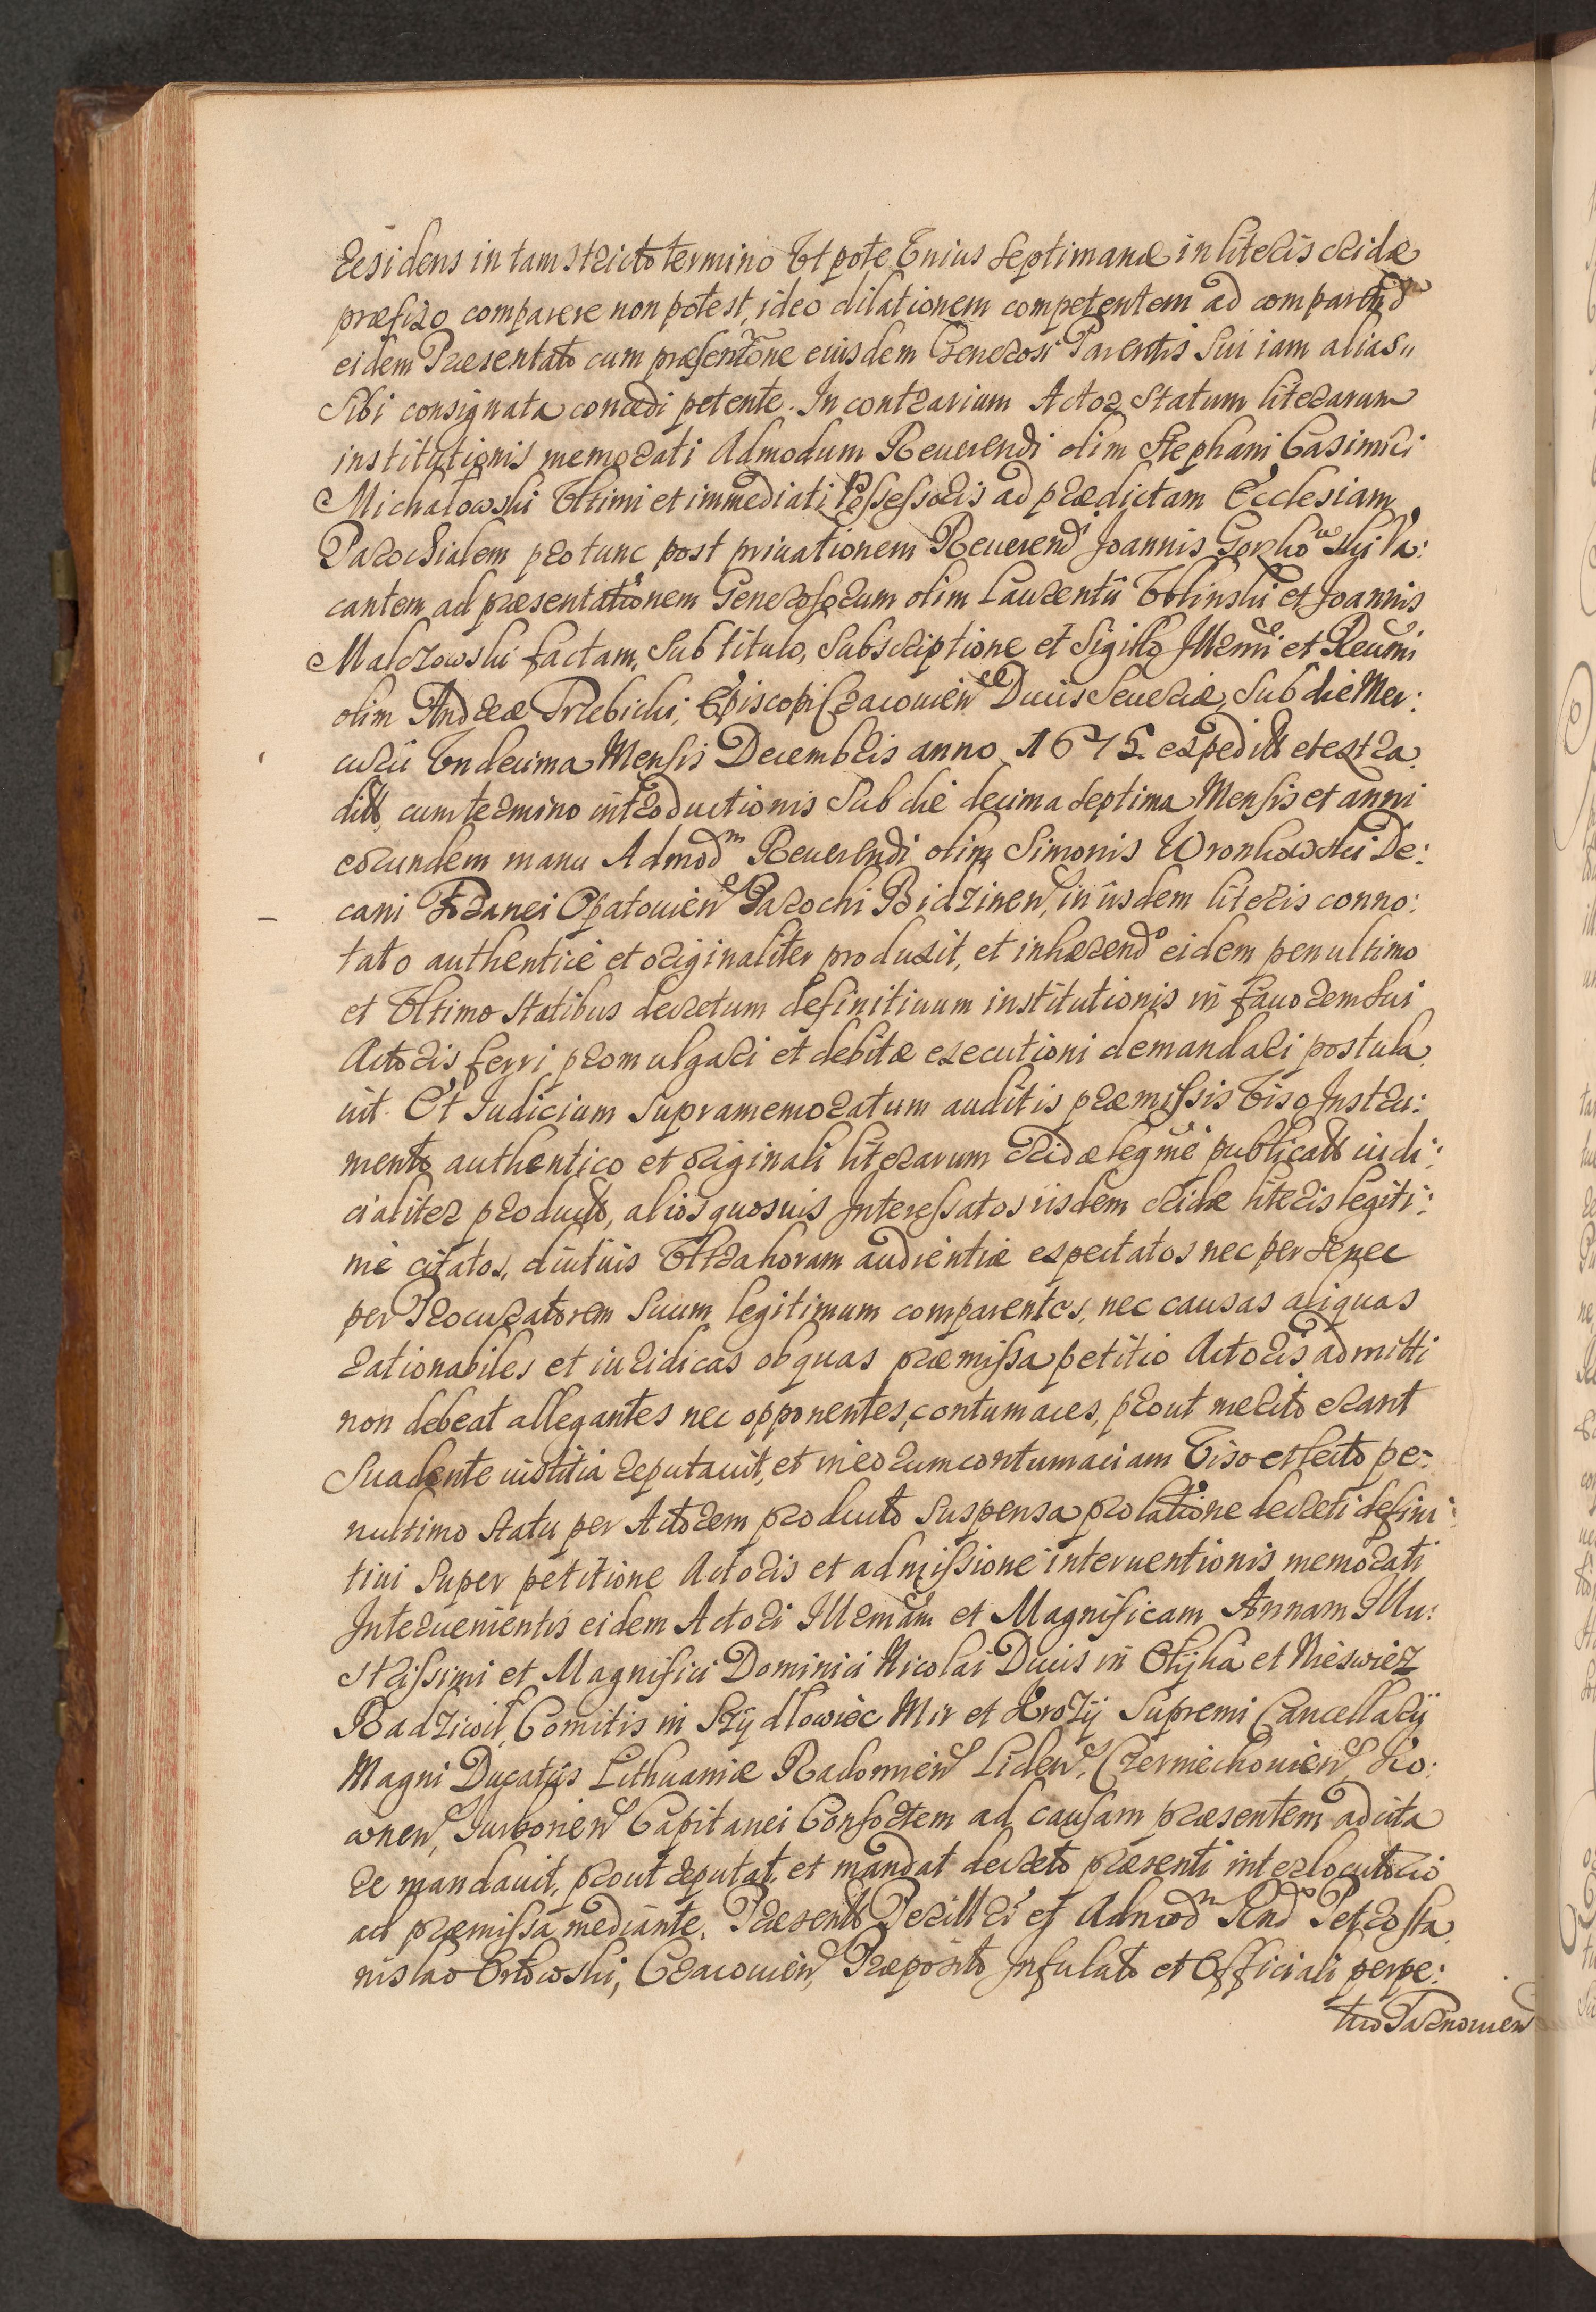 residens in tam stricto termino Vtpote Vnius septimanæ in literis cridæ
præfixo comparere non potest, ideo dilationem competentem ad comparend
eidem Præsentato cum præsentõne eiusdem Generosi Parentis sui iam alias„
sibi consignata concedi petente. In contrarium Actor statum literarum
institutionis memorati Admodum Reuerendi olim Stephani Casimiri
Michałowski Vltimi et immediati Possessoris ad prædictam Ecclesiam
Parochialem pro tunc post priuationem Reuerendi Joannis Gorkowski Va:
cantem, ad præsentationem Generosorum olim Laurentii et Joannis
Malczowski factam, sub titulo, subscriptione et sigillo Illmi et Reumi
olim Andreæ Trzebicki, Episcopi Cracouien Ducis Seueriæ, sub die Mer:
curii Vndecima Mensis Decembris anno 1675. expedit et extra
dit, cum termino introductionis sub die decima septima Mensis et anni
eorundem manu Admodm Reuerendi olim Simonis Wronkowski De:
cani Foranei Opatouien Parochi Bidzinen, in iisdem literis conno:
tato authentice et originaliter produxit, et inhærendo eidem penultimo
et Vltimo statibus decretum definitiuum institutionis in fauorem sui
Actoris ferri promulgari et debitæ executioni demandari postula
uit. Et Iudicium supramemoratum auditis præmissis Viso Instru:
mento authentico et originali literarum cridæ legme publicat iudi:
cialiter product, aliosquosuis Interessatos iisdem cridæ literis legiti:
me citatos, diutius Vltra horam audientiæ expectatos nec per se nec
per Procuratorem suum legitimum comparentes, nec causas aliquas
rationabiles et iuridicas ob quas præmissa petitio Actoris admitti
non debeat allegantes nec opponentes, contumaces, prout merito erant
suadente iustitia reputauit, et in eorum contumaciam Viso et lecto pe:
nultimo statu per Actorem producto suspensa prolatione decreti defini:
tiui super petitione Actoris et admissione interuentionis memorati
Interuenientis eidem Actori Illrmam et Magnificam Annam Illu:
strissimi et Magnifici Dominici Nicolai Ducis in Ołyka et Nieswiez
Radziwił, Comitis in Szydłowiec Mir et Krozy Supremi Cancellarij
Magni Ducatus Lithuaniæ Radomien Liden, Czermiechouien,
Iurborien Capitanei Consortem ad causam præsentem adcita
re mandauit, prout reputat, et mandat decreto præsenti interlocutorio
ad præmissa mediante. Præsente Perillri et Admodm Rndo Petro Sta
nislao Orłowski, Cracouien, Præposito Infulato et Officiali perpe:
tuo Tarnouien